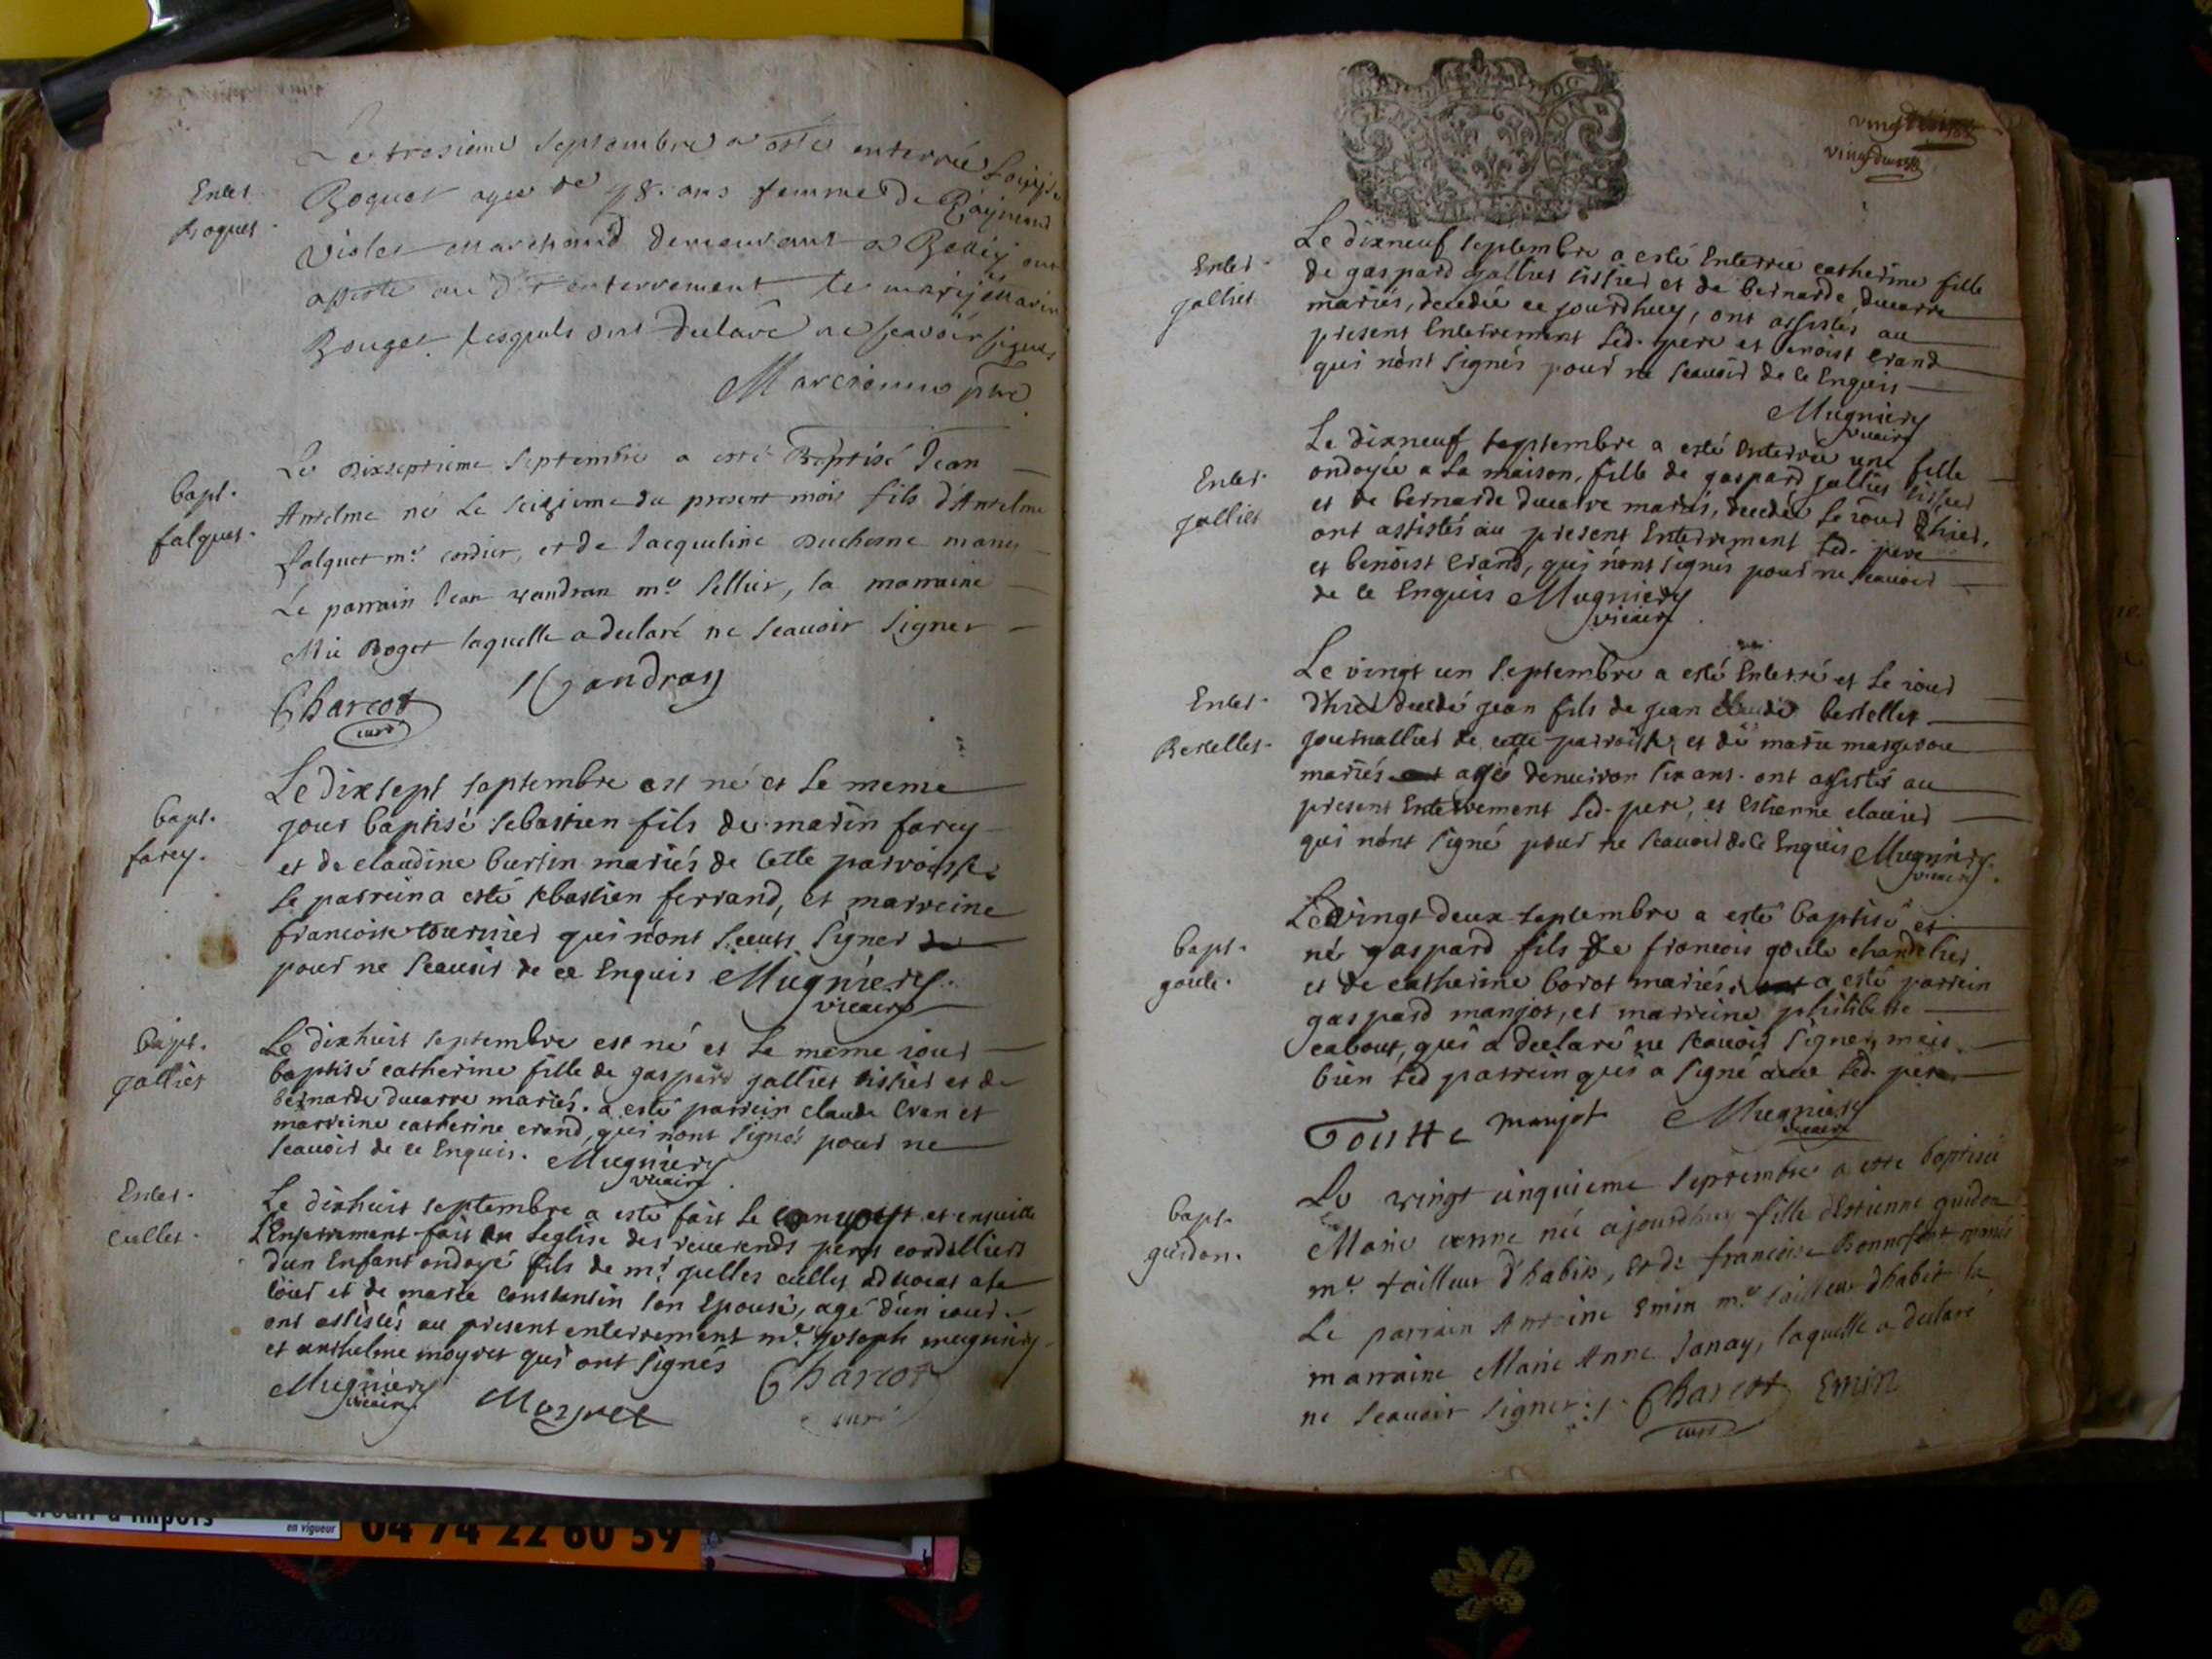 Le trosieme septembre a este enterrée Loüyse
Enter.
Roguet agee de 78. ans femme de Raymond
Roguet
Violet marchand demeurant a Belley ont
assisté au dit enterrement le mary et marin
Bouget lesquels ont declaré ne scavoir signer
Marcieunu ptre
Le dixseptieme Septembre a esté Baptisé Jean
bapt.
Antelme né le seizieme du present mois fils d'Antelme
falquet.
falquet me. cordier, et de Jacqueline Duchesne mariés
Le parrain Jean vandran me. sellier, la marraine
Mie Roget laquelle a declaré ne scauoir signer
Charcot curé Vandran
Le dixsept septembre est né et le meme
bapt.
jour baptisé sebastien fils de marin farcy
farcy.
et de claudine burtin mariés de cette parroisse
le parrein a esté sebastien ferrand, et marreine
francoise tournier qui n'ont sceuts signer
pour ne scauoir de ce Enquis Mugniery
vicaire
bapt.
Le dixhuit septembre est né et le meme iour
gallier
baptisé catherine fille de gaspard gallier tissier et de
bernarde ducarre mariés. a esté parrein claude cran et
marreine catherine crand, qui n'ont signés pour ne
scauoir de ce Enquis. Mugniery
vicaire
Enter.
Le dixhuit septembre a esté fait le conuoist et ensuitte
cullet.
L'Enterrement fait en leglise des reuerends peres cordelliers
d'un Enfant ondoyé fils de mr. cullet aduocat a la
cour et de marie constantin son Epouse, agé d'un iour.
ont assistés au present enterrement me. joseph mugniery
et anthelme moyret qui ont signés
Mugniery Moyret Charcot
vicaire curé
vingtdeux
Le dixneuf septembre a esté Enterrée catherine fille
Enter.
de gaspard gallier tissier et de bernarde ducarre
gallier
mariés, decedée ce jourdhuy, ont assistés au
present Enterrement led. pere et benoist crand
qui n'ont signés pour ne scauoir de ce Enquis
Mugniery
vicaire
Le dixneuf septembre a esté enterrée une fille
Enter.
ondoyée a la maison, fille de gaspard gallier tissier
gallier
et de bernarde ducarre mariés, decedée le iour d'hier.
ont assistés au present Enterrement led. pere
et benoist crand, qui n'ont signés pour ne scauoir
de ce Enquis Mugniery
vicaire
Le vingt un septembre a esté Enterré et le iour
Enter.
d'hier decedé jean fils de jean claude bertellet
Bertellet.
journallier de cette parroisse, et de marie margeron
mariés agé denuiron six ans. ont assistés au
present Enterrement led. pere, et Estienne clauier
qui n'ont signé pour ne scauoir de ce Enquis Mugniery
vicaire
Le vingt deux septembre a esté baptisé et
bapt.
né gaspard fils de francois goule chandelier
goule.
et de catherine borot mariés, a esté parrein
gaspard manjot, et marreine philiberte
cabout, qui a declaré ne scauoir signer, mais
bien led parrein qui a signé auec led. pere
Goutte manjot Mugniery
vicaire
Le vingt cinquieme septembre a esté baptisée
bapt.
Marie née ajourdhuy fille d'Estienne guidon
guidon.
me. tailleur d'habits, et de francoise Bonnefont mariés
Le parrain Antoine Emin me. tailleur d'habit la
marraine Marie Anne Janay, laquelle a declaré
ne scauoir signer. Charcot Emin
curé
crédit d'impôts
en vigueur
04 74 22 60 59